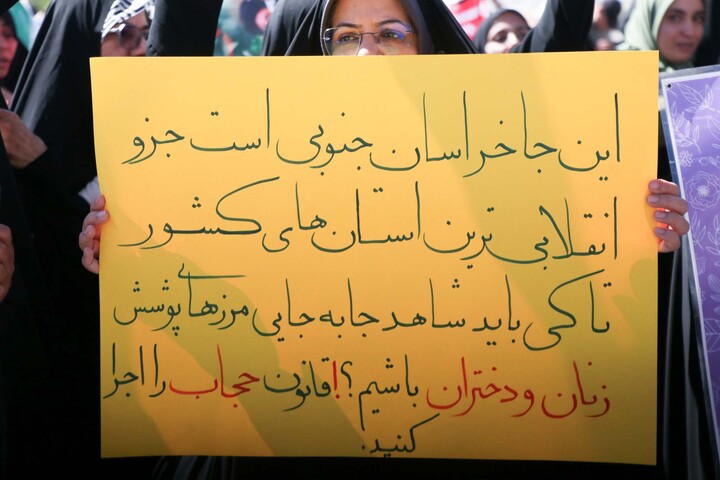 این جا خراسان جنوبی است جزو
انقلابی ترین استان های کشور
تا کی باید شاهد جا به جایی مرزهای پوشش
زنان و دختران باشیم؟! قانون حجاب را اجرا
کنید.